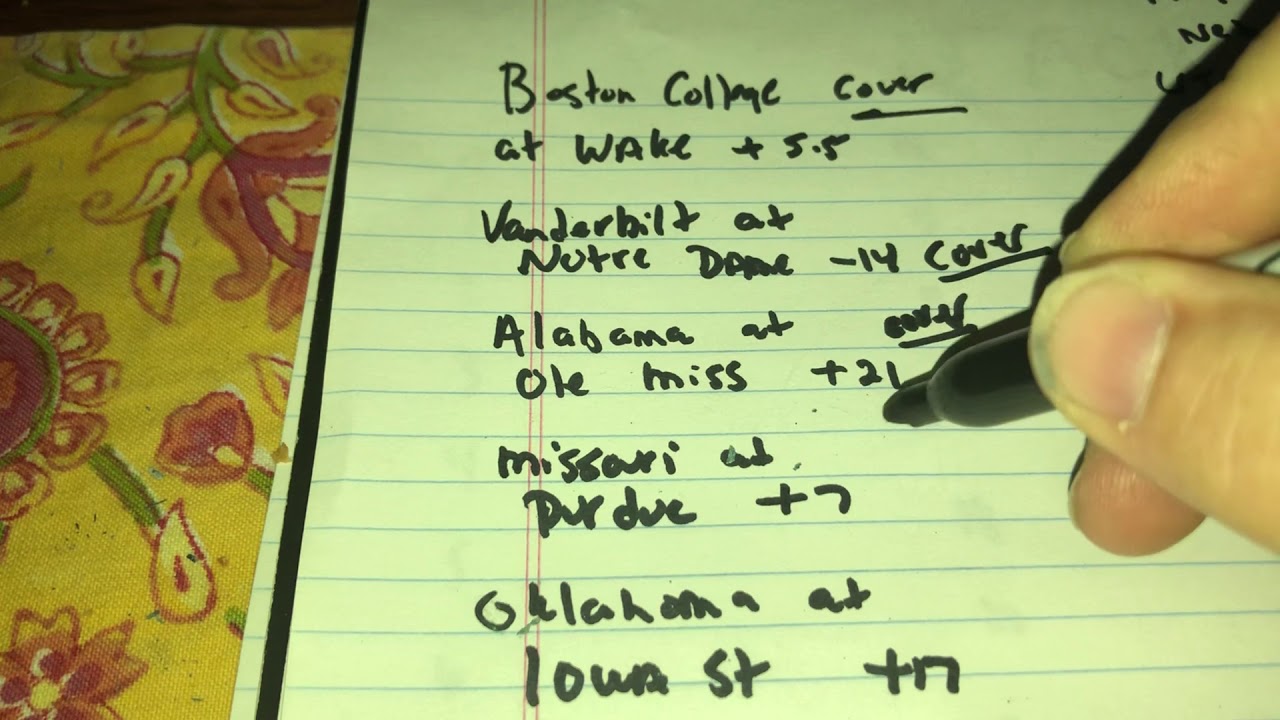 Boston College cover
at WAKE + 5.5
Vanderbilt at
Notre DAme -14 cover
Alabama at cover
Ole miss +21
missouri at
Purdue +7
Oklahoma at
Iowa St +17